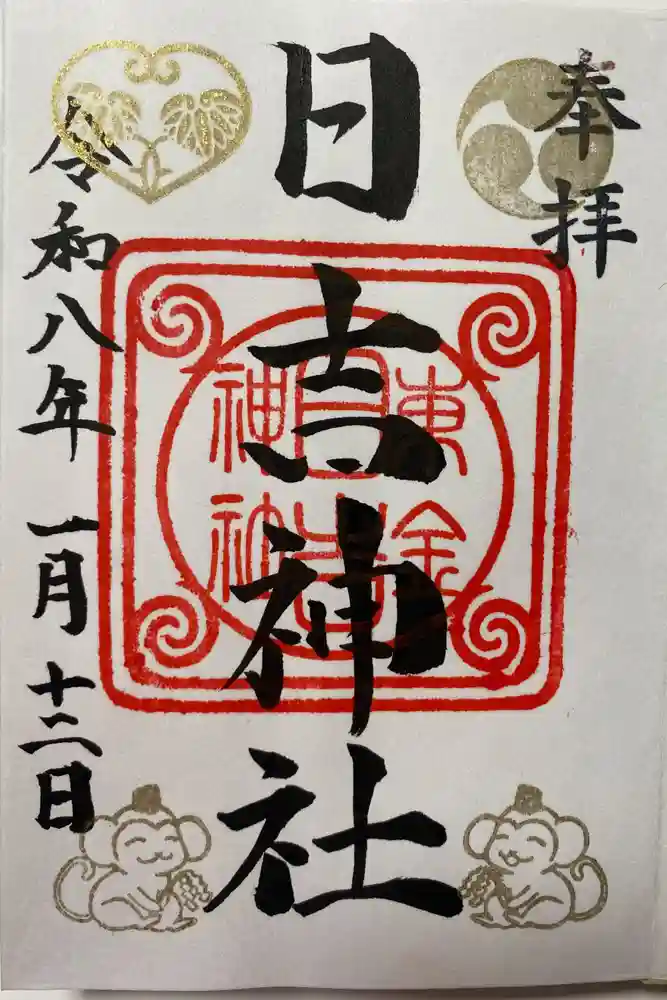 奉拝
日吉神社
令和八年一月十二日
東金
日吉
神社